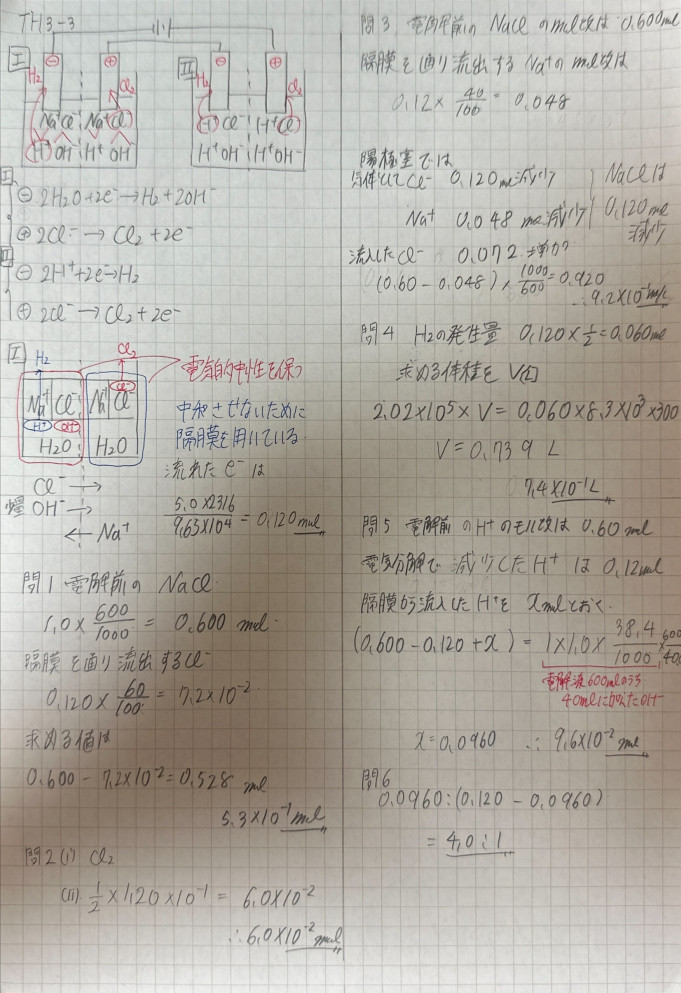 TH3-3
I
⊖ ⊕
H₂ Cl₂
Na⁺Cl⁻ Na⁺Cl⁻
H⁺ OH⁻ H⁺ OH⁻
II
⊖ ⊕
H₂ Cl₂
H⁺Cl⁻ H⁺Cl⁻
H⁺OH⁻ H⁺OH⁻
I
⊖ 2H₂O+2e⁻→H₂+2OH⁻
⊕ 2Cl⁻→Cl₂+2e⁻
II
⊖ 2H⁺+2e⁻→H₂
⊕ 2Cl⁻→Cl₂+2e⁻
I
H₂ Cl₂
Na⁺ Cl⁻ Na⁺ Cl⁻
H⁺ OH⁻
H₂O H₂O
電気的中性を保つ
中和させないために
隔膜を用いている.
Cl⁻ →
OH⁻ →
← Na⁺
流れた e⁻ は
5.0×2316/9.65×10⁴ = 0.120 mol
問1 電解前の NaCl.
1.0×600/1000 = 0.600 mol.
隔膜を通り流出するCl⁻
0.120×60/100 = 7.2×10⁻².
求める値は
0.600 - 7.2×10⁻² = 0.528 mol
5.3×10⁻¹ mol
問2 (i) Cl₂
(ii) 1/2×1.20×10⁻¹ = 6.0×10⁻²
∴ 6.0×10⁻² mol
問3 電解前の NaCl のmol数は 0.600mol
隔膜を通り流出する Na⁺の mol数は
0.12×40/100 = 0.048
陽極室では
気体として Cl⁻ 0.120 mol減少
Na⁺ 0.048 mol減少
NaClは
0.120mol
減少
流入した Cl⁻ 0.072 増加
(0.60-0.048)×1000/600=0.920
∴ 9.2×10⁻¹ mol/L
問4 H₂の発生量 0.120×1/2=0.060mol
求める体積を V(L)
2.02×10⁵×V = 0.060×8.3×10³×300
V=0.739 L
7.4×10⁻¹L
問5 電解前のH⁺のモル数は 0.60 mol
電気分解で減少したH⁺は 0.12mol
隔膜から流入したH⁺を xmolとおく.
(0.600-0.120+x) = 1×1.0×38.4/1000×600/40
電解液600mlのうち
40mlに加えたOH⁻
x=0.0960 ∴ 9.6×10⁻² mol
問6
0.0960:(0.120-0.0960)
= 4.0:1